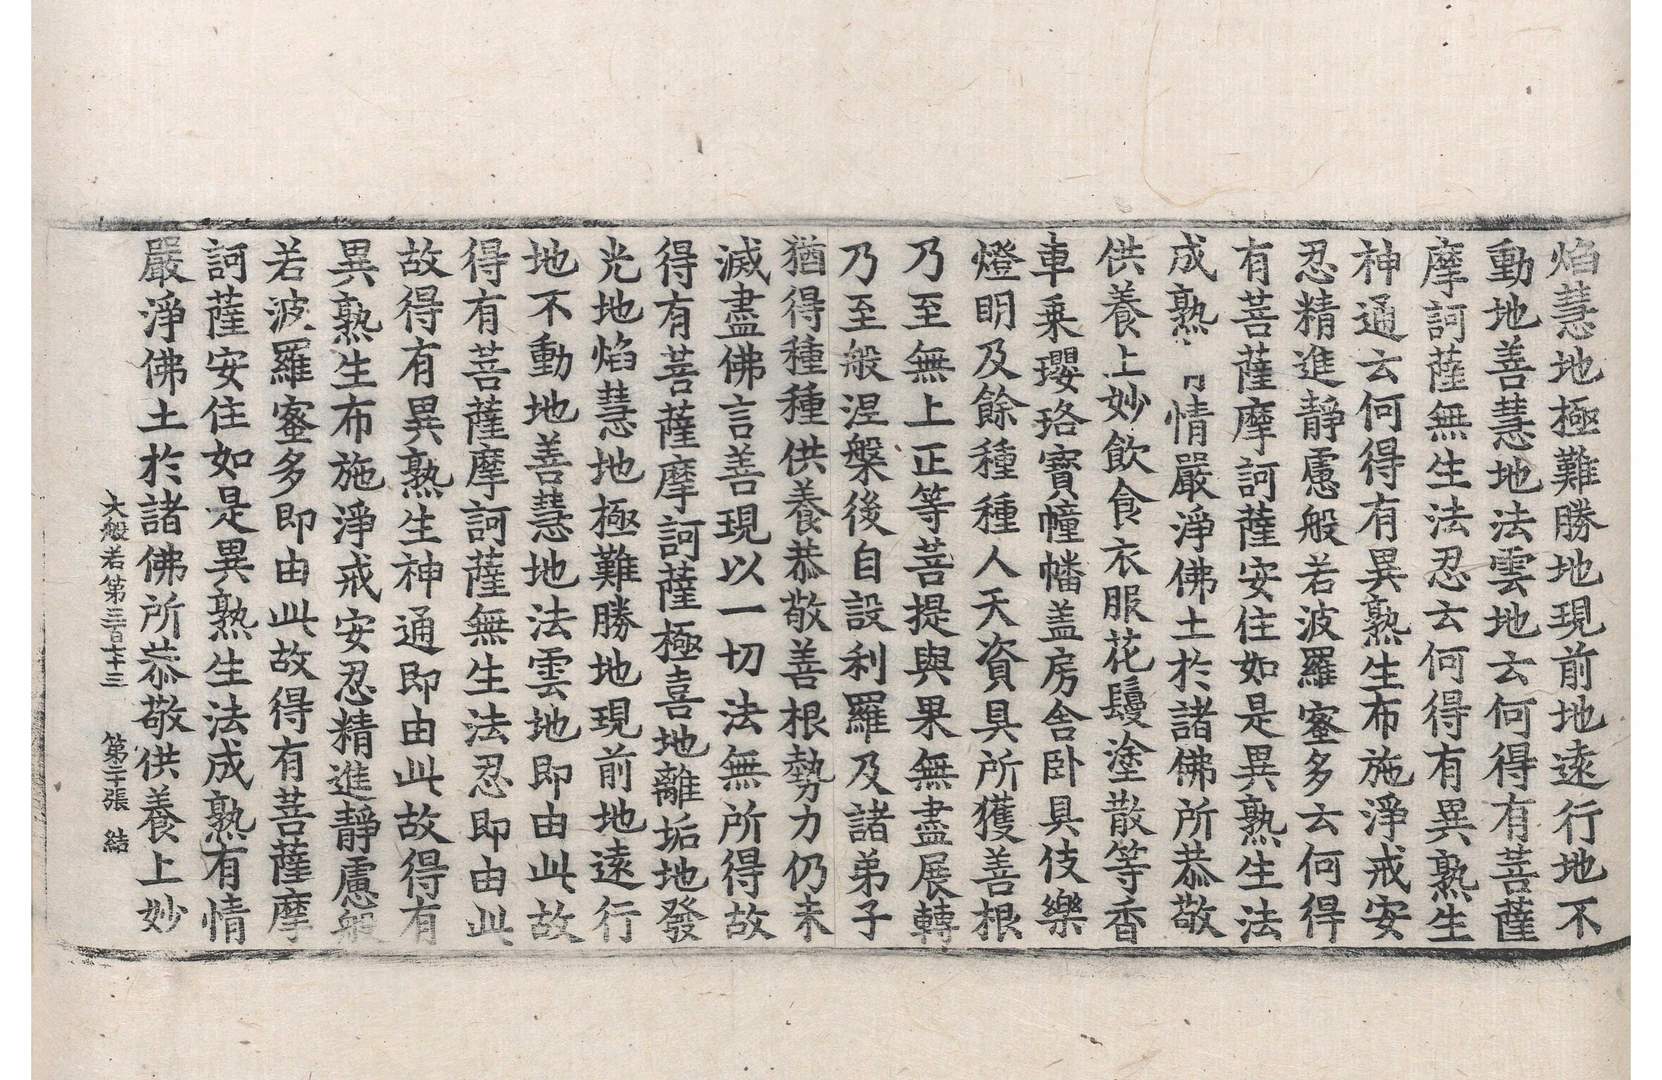 焰慧地極難勝地現前地遠行地不
動地善慧地法雲地云何得有菩薩
摩訶薩無生法忍云何得有異熟生
神通云何得有異熟生布施淨戒安
忍精進靜慮般若波羅蜜多云何得
有菩薩摩訶薩安住如是異熟生法
成熟情嚴淨佛土於諸佛所恭敬
供養上妙飲食衣服花鬘塗散等香
車乗瓔珞寶幢幡盖房舍卧具伎樂
燈明及餘種種人天資具所獲善根
乃至無上正等菩提與果無盡展轉
乃至般涅槃後自設利羅及諸弟子
猶得種種供養恭敬善根勢力仍未
滅盡佛言善現以一切法無所得故
得有菩薩摩訶薩極喜地離垢地發
光地焰慧地極難勝地現前地遠行
地不動地善慧地法雲地即由此故
得有菩薩摩訶薩無生法忍即由此
故得有異熟生神通即由此故得有
異熟生布施淨戒安忍精進靜慮般
若波羅蜜多即由此故得有菩薩摩
訶薩安住如是異熟生法成熟有情
嚴淨佛土於諸佛所恭敬供養上妙
大般若第三百七十三 第二十張 結